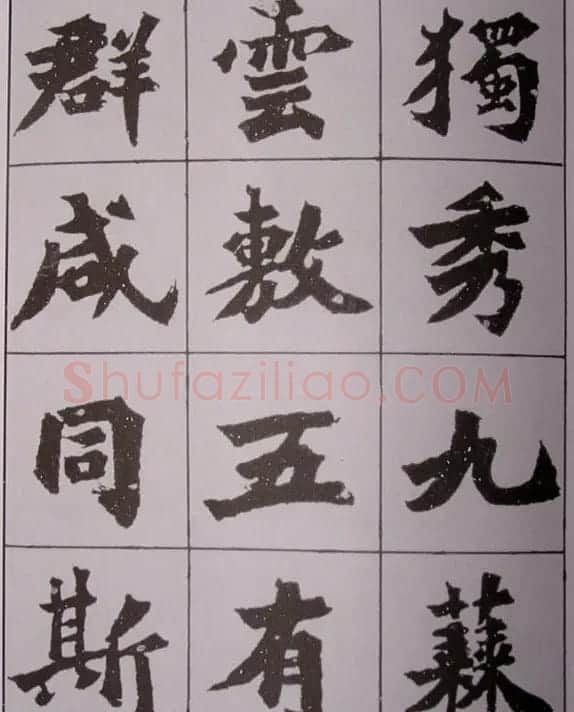 獨秀九蕀
雲敷五有
群咸同斯
Shufaziliao.COM